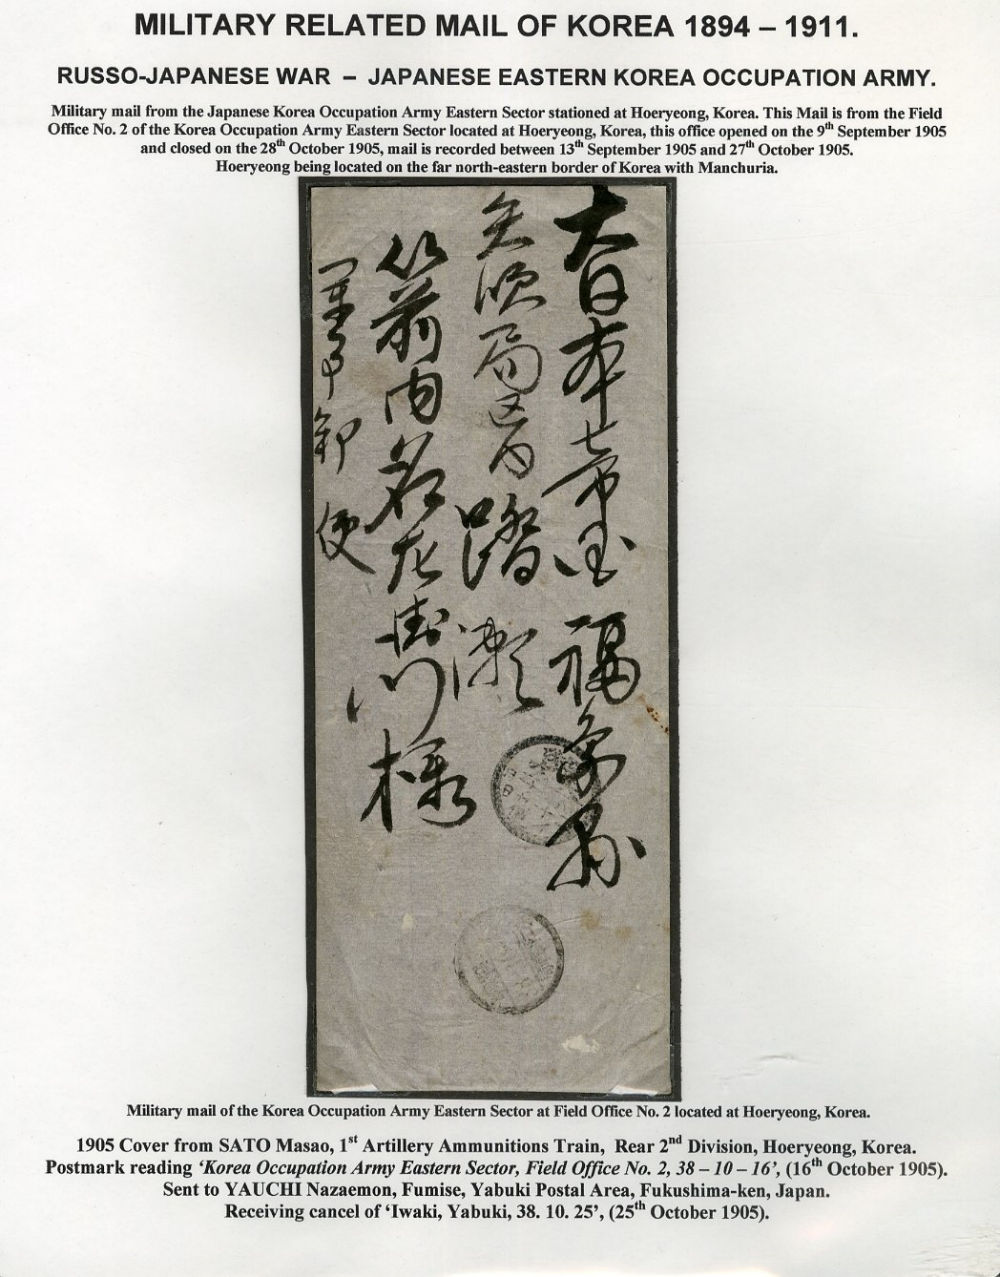 MILITARY RELATED MAIL OF KOREA 1894 – 1911.
RUSSO-JAPANESE WAR – JAPANESE EASTERN KOREA OCCUPATION ARMY.
Military mail from the Japanese Korea Occupation Army Eastern Sector stationed at Hoeryeong, Korea. This Mail is from the Field
Office No. 2 of the Korea Occupation Army Eastern Sector located at Hoeryeong, Korea, this office opened on the 9th September 1905
and closed on the 28th October 1905, mail is recorded between 13th September 1905 and 27th October 1905.
Hoeryeong being located on the far north-eastern border of Korea with Manchuria.
大日本帝国福島県
局区内踏瀬
箭内名左衛門様
軍事郵便
Military mail of the Korea Occupation Army Eastern Sector at Field Office No. 2 located at Hoeryeong, Korea.
1905 Cover from SATO Masao, 1st Artillery Ammunitions Train, Rear 2nd Division, Hoeryeong, Korea.
Postmark reading ‘Korea Occupation Army Eastern Sector, Field Office No. 2, 38 – 10 – 16’, (16th October 1905).
Sent to YAUCHI Nazaemon, Fumise, Yabuki Postal Area, Fukushima-ken, Japan.
Receiving cancel of ‘Iwaki, Yabuki, 38. 10. 25’, (25th October 1905).